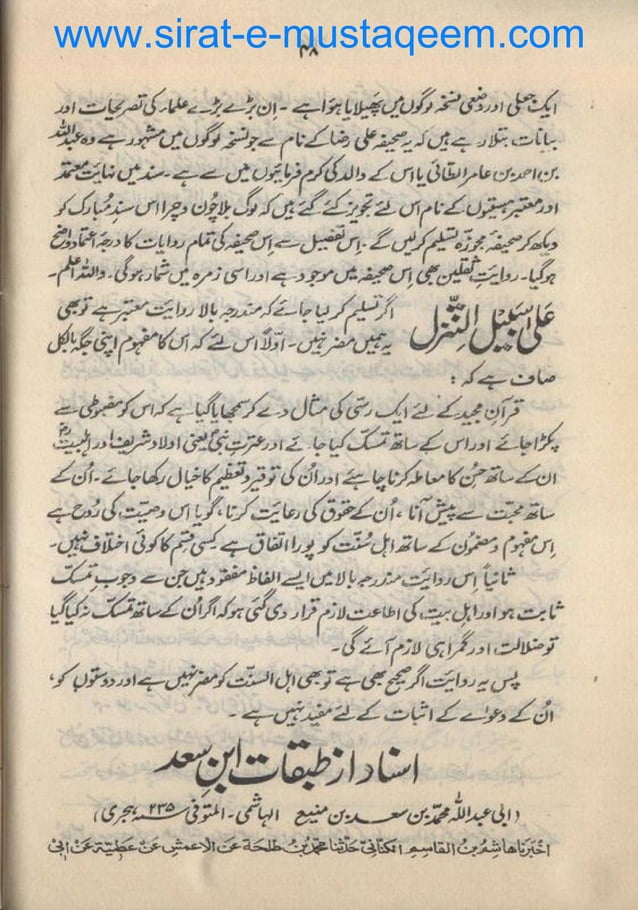 www.sirat-e-mustaqeem.com
۴۸
ایک جعلی اور وضعی نسخہ لوگوں میں پھیلایا ہوا ہے ۔ اِن بڑے بڑے علماء کی تصریحات اور
بیانات بتلا رہے ہیں کہ یہ صحیفہ علی رضا کے نام سے جو نسخہ لوگوں میں مشہور ہے وہ عبداللہ
بن احمد بن عامر الطائی یا اس کے والد کی کرم فرمائیوں میں سے ہے ۔ سند میں نہایت معتمد
اور معتبر ہستیوں کے نام اس لئے تجویز کئے گئے ہیں کہ لوگ بلا چُون و چرا اس سند مُبارک کو
دیکھ کر صحیفۂ مجوزہ تسلیم کر لیں گے ۔ اِس تفصیل سے اِس صحیفہ کی تمام روایات کا درجۂ اعتماد واضح
ہو گیا ۔ روایتِ ثقلین بھی اِس صحیفہ میں موجود ہے اور اسی زمرہ میں شمار ہو گی ۔ واللہ اعلم ۔
عَلیٰ سَبِیْلِ التَّنَزُّل
اگر تسلیم کر لیا جائے کہ مندرجہ بالا روایت معتبر ہے تو بھی
یہ ہمیں مضر نہیں ۔ اوّلاً اس لئے کہ اس کا مفہوم اپنی جگہ بالکل
صاف ہے کہ :
قرآنِ مجید کے لئے ایک رسّی کی مثال دے کر سمجھایا گیا ہے کہ اس کو مضبوطی سے
پکڑا جائے اور اس کے ساتھ تمسک کیا جائے اور عترتِ نبیؐ یعنی اولاد شریف اور اہلبیتؓ
ان کے ساتھ حُسن کا معاملہ کرنا چاہئے اور اُن کی توقیر و تعظیم کا خیال رکھا جائے ۔ اُن کے
ساتھ محبّت سے پیش آنا ، اُن کے حقوق کی رعایت کرنا ، گویا اس وصیّت کی رُوح ہے
اِس مفہوم و مضمُون کے ساتھ اہلِ سُنّت کو پورا اتفاق ہے کسی قِسم کا کوئی اختلاف نہیں ۔
ثانیاً اِس روایت مندرجہ بالا میں ایسے الفاظ مفقود ہیں جن سے وجوبِ تمسک
ثابت ہو اور اہلِ بیت کی اطاعت لازم قرار دی گئی ہو کہ اگر اُن کے ساتھ تمسّک نہ کیا گیا
تو ضلالت اور گمراہی لازم آئے گی ۔
پس یہ روایت اگر صحیح بھی ہے تو بھی اہل السنّت کو مضر نہیں ہے اور دوستوں کو ،
اُن کے دعوٰے کے اثبات کے لئے مفید نہیں ہے ۔
اسناد از طبقات ابنِ سعد
(ابی عبداللہ محمّد بن سعد بن منیع الہاشمی ۔ المتوفی ۲۳۵ ہجری)
اخبرنا هاشم بن القاسم الکنانی حدثنا محمد بن طلحة عن الاعمش عن عطیة عن ابی